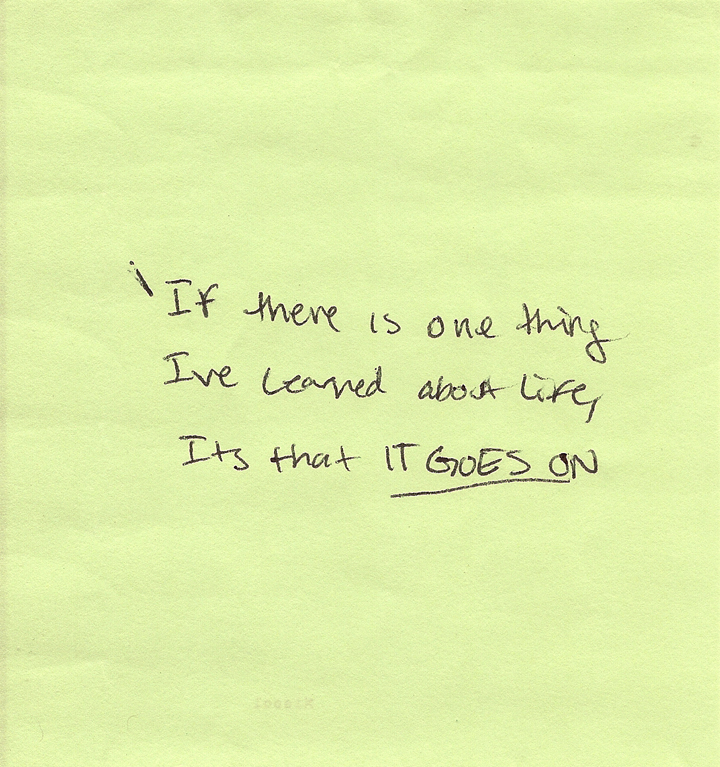 If there is one thing
Ive learned about life,
Its that IT GOES ON